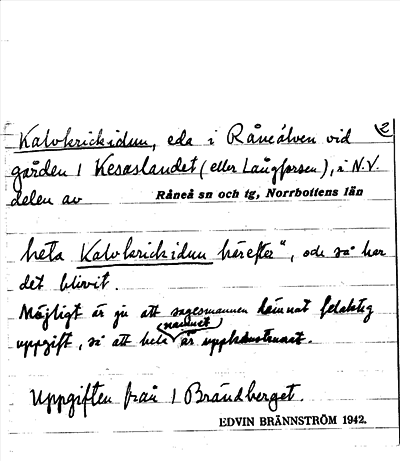 2
Kalvkrickidun, eda i Råneälven vid
gården 1 Kesaslandet (eller Långforsen), i N.V.
delen av Råneå sn och tg, Norrbottens län
heta Kalvkrickidun härefter", och så har
det blivit.
Möjligt är ju att sagesmannen lämnat felaktig
uppgift, så att hela namnet är uppkonstruerat.
Uppgiften från 1 Brändberget.
EDVIN BRÄNNSTRÖM 1942.